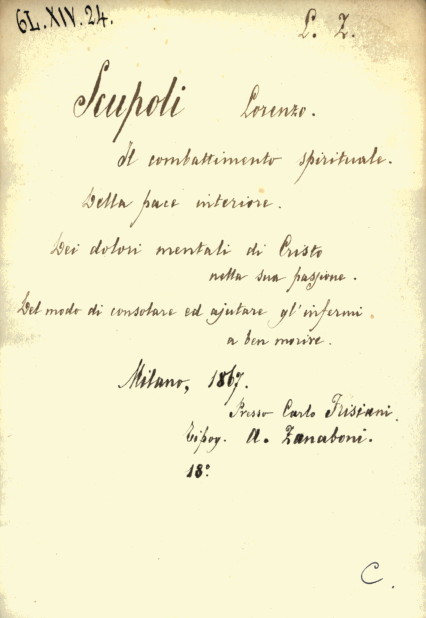 6L.XIV.24.
L. Z.
Scupoli Lorenzo.
Il combattimento spirituale.
Della pace interiore.
Dei dolori mentali di Cristo
nella sua passione.
Del modo di consolare ed ajutare gl'infermi
a ben morire.
Milano, 1867.
Presso Carlo Frisiani.
Tipog. A. Zanaboni.
18°.
C.